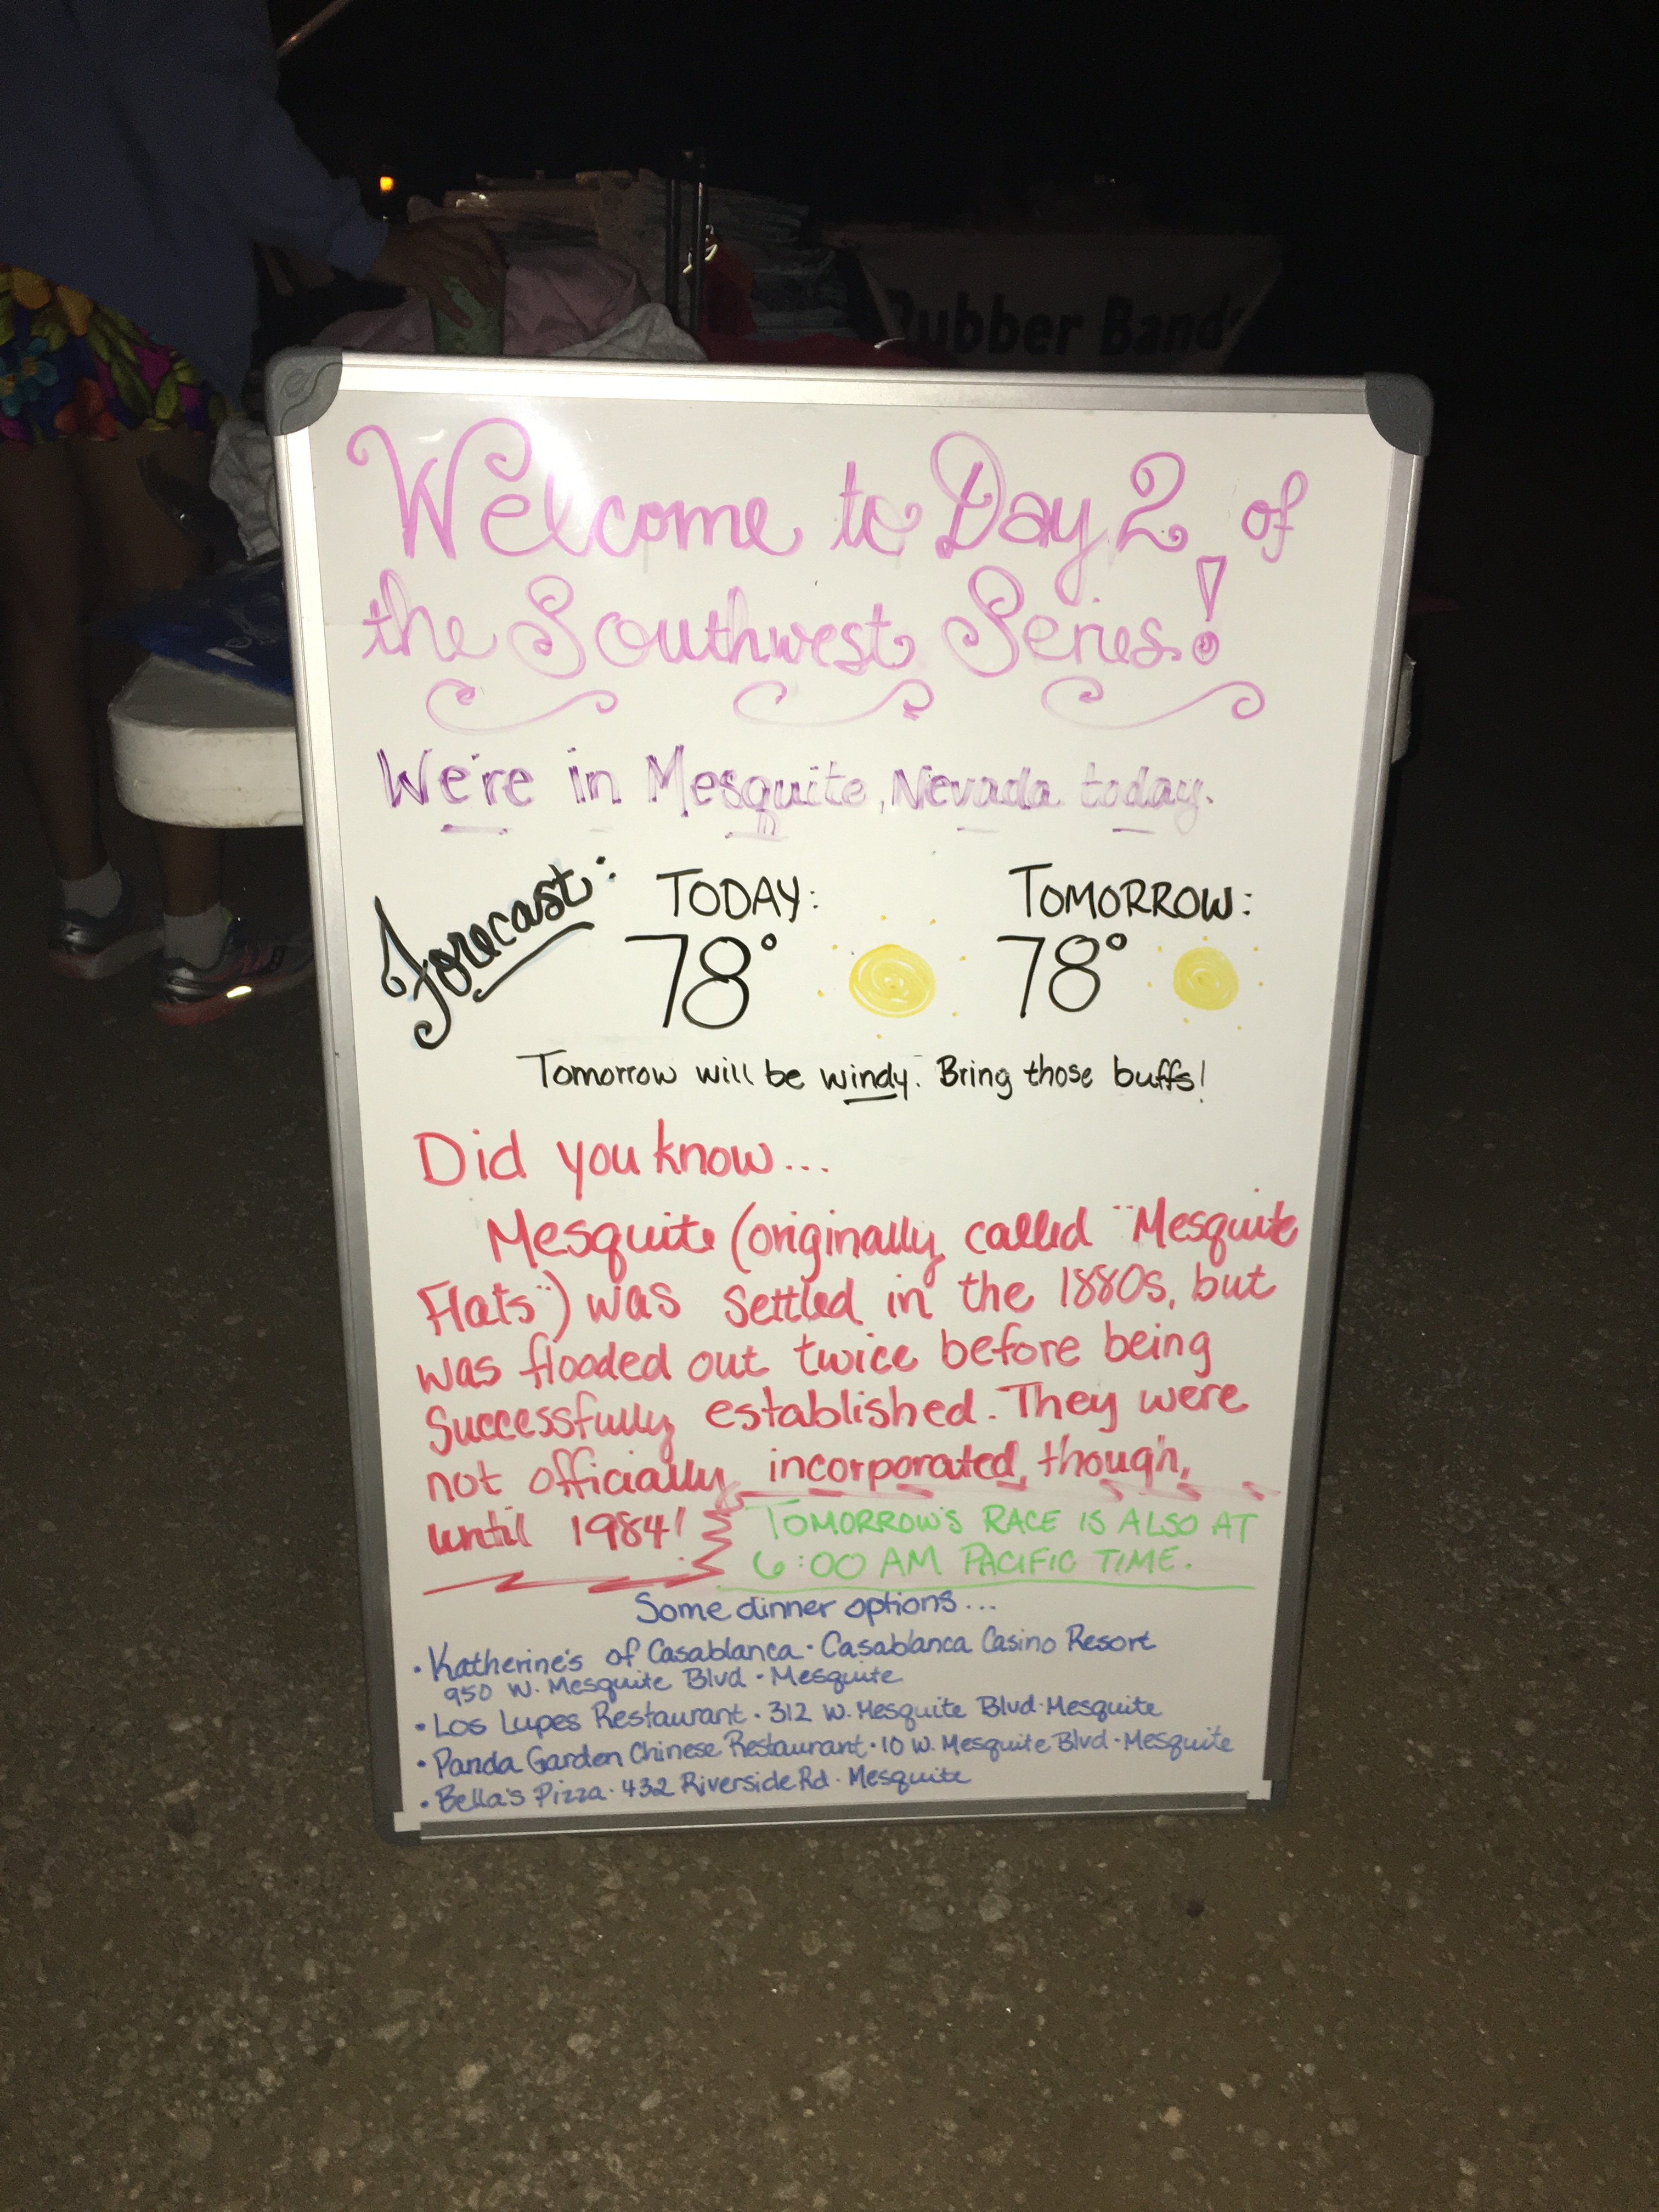 Rubber Bands
Welcome to Day 2 of
the Southwest Series!
We're in Mesquite, Nevada today.
Forecast: TODAY: TOMORROW:
78° 78°
Tomorrow will be windy. Bring those buffs!
Did you know...
Mesquite (originally called "Mesquite
Flats") was settled in the 1880s, but
was flooded out twice before being
successfully established. They were
not officially incorporated, though,
until 1984! TOMORROW'S RACE IS ALSO AT
6:00 AM PACIFIC TIME.
Some dinner options...
• Katherine's of Casablanca · Casablanca Casino Resort
950 W. Mesquite Blvd · Mesquite
• Los Lupes Restaurant · 312 W. Mesquite Blvd · Mesquite
• Panda Garden Chinese Restaurant · 10 W. Mesquite Blvd · Mesquite
• Bella's Pizza · 432 Riverside Rd · Mesquite